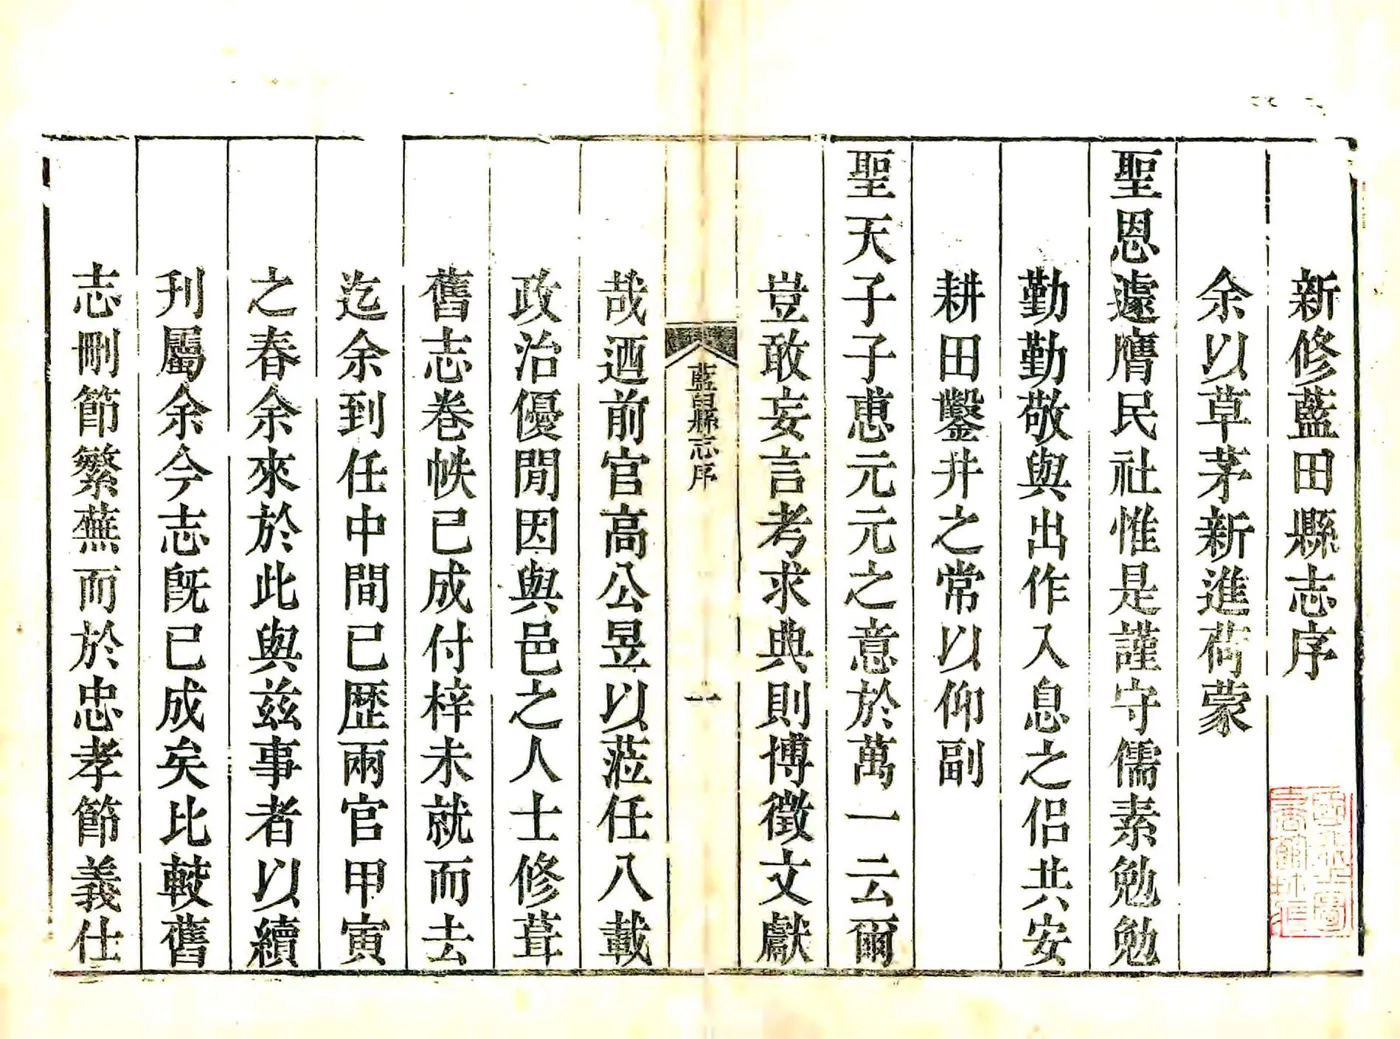 新修藍田縣志序
余以草茅新進荷蒙
聖恩遽膺民社惟是謹守儒素勉勉
勤勤敬與出作入息之侶共安
耕田鑿井之常以仰副
聖天子子惠元元之意於萬一云爾
豈敢妄言考求典則博徵文獻
藍田縣志序
一
哉迺前官高公昱以蒞任八載
政治優閒因與邑之人士修葺
舊志卷帙已成付梓未就而去
迄余到任中間已歷兩官甲寅
之春余來於此與茲事者以續
刋屬余今志旣已成矣比較舊
志刪節繁蕪而於忠孝節義仕